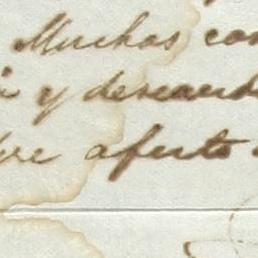 Muchas con
y deseand
re afecto